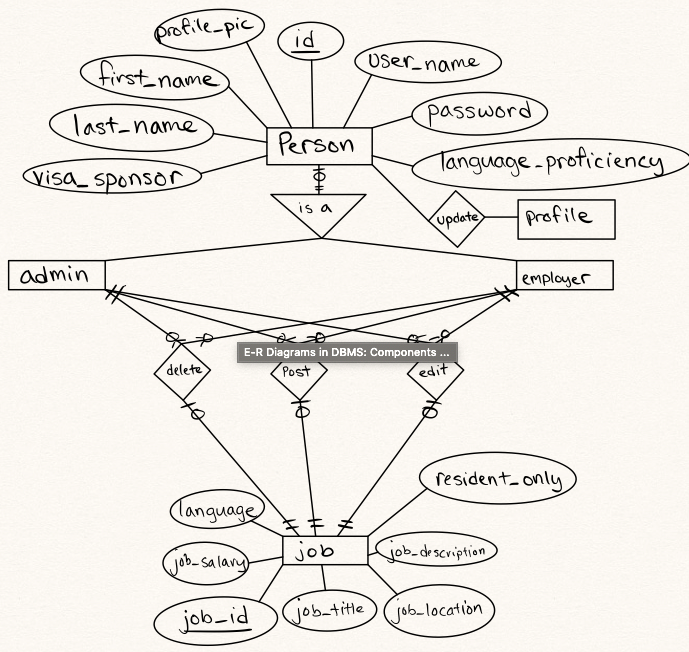 profile_pic
id
user_name
first_name
password
last_name
Person
language_proficiency
visa_sponsor
is a
update
profile
admin
employer
E-R Diagrams in DBMS: Components ...
delete
Post
edit
resident_only
language
job
job_description
job_salary
job_id
job_title
job_location